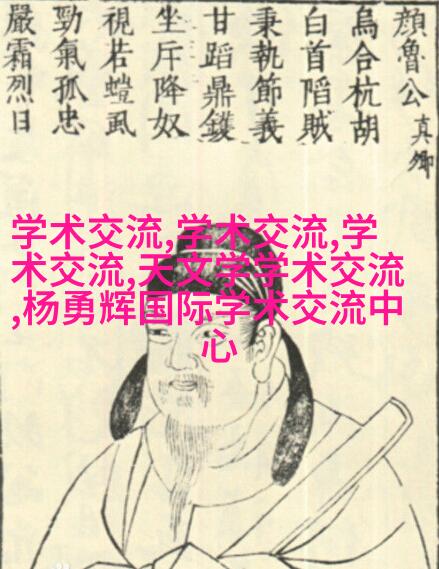 顔魯公真卿
烏合杭胡
白首陷賊
秉執節義
甘蹈鼎鑊
坐斥降奴
視若螘虱
勁氣孤忠
嚴霜烈日
学术交流,学术交流,学
术交流,天文学学术交流
,杨勇辉国际学术交流中
心